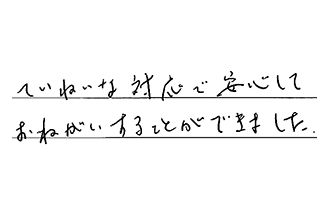 ていねいな対応で安心して
おねがいすることができました.